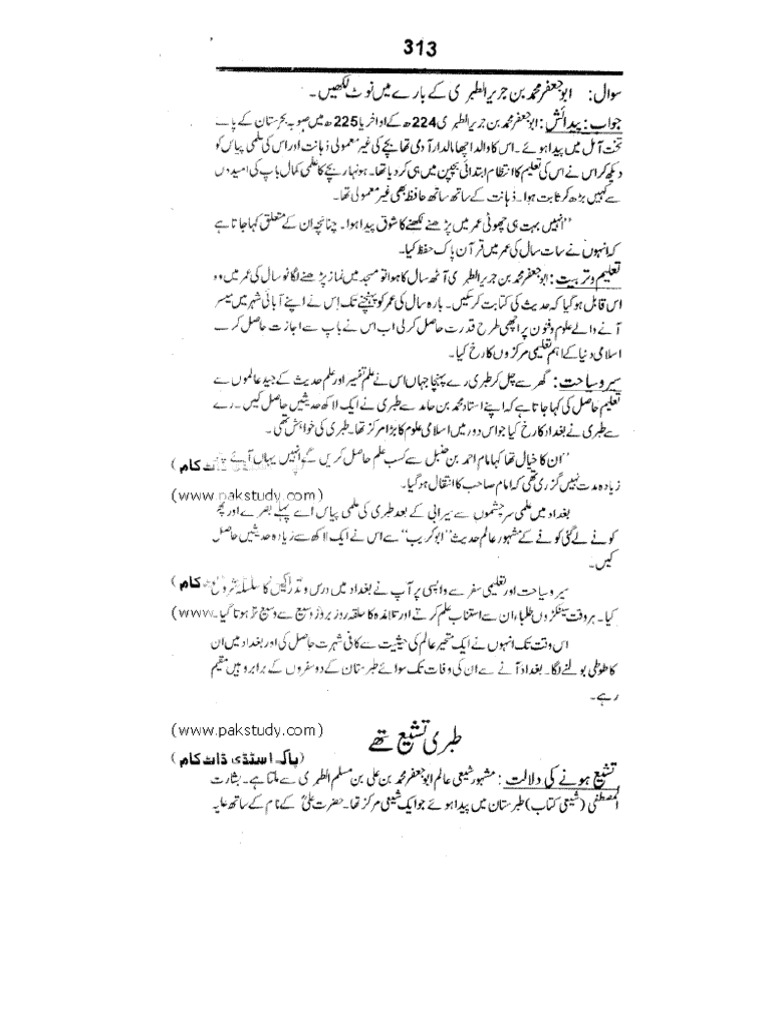 313
سوال: ابو جعفر محمد بن جریر الطبری کے بارے میں نوٹ لکھیں۔
جواب: پیدائش: ابو جعفر محمد بن جریر الطبری 224ھ کے اواخر یا 225ھ میں صوبہ بحرستان کے پائے
تخت آمل میں پیدا ہوئے۔ اس کا والد اچھا مالدار آدمی تھا بچے کی غیر معمولی ذہانت اور اس کی علمی پیاس کو
دیکھ کر اس نے اس کی تعلیم کا انتظام ابتدائی بچپن میں ہی کر دیا تھا۔ ہونہار بچے کا علمی کمال باپ کی امیدوں
سے کہیں بڑھ کر ثابت ہوا۔ ذہانت کے ساتھ ساتھ حافظہ بھی غیر معمولی تھا۔
”انہیں بہت ہی چھوٹی عمر میں پڑھنے لکھنے کا شوق پیدا ہوا۔ چنانچہ ان کے متعلق کہا جاتا ہے
کہ انہوں نے سات سال کی عمر میں قرآن پاک حفظ کیا۔
تعلیم و تربیت: ابو جعفر محمد بن جریر الطبری آٹھ سال کا ہوا تو مسجد میں نماز پڑھنے لگا نو سال کی عمر میں وہ
اس قابل ہو گیا کہ حدیث کی کتابت کر سکیں۔ بارہ سال کی عمر کو پہنچنے تک اس نے اپنے آبائی شہر میں میسر
آنے والے علوم و فنون پر اچھی طرح قدرت حاصل کر لی اب اس نے باپ سے اجازت حاصل کر کے
اسلامی دنیا کے اہم تعلیمی مرکزوں کا رخ کیا۔
سیر و سیاحت: گھر سے چل کر طبری رے پہنچا جہاں اس نے علم تفسیر اور علم حدیث کے جید عالموں سے
تعلیم حاصل کی کہا جاتا ہے کہ اپنے استاد محمد بن حامد سے طبری نے ایک لاکھ حدیثیں حاصل کیں۔ رے
سے طبری نے بغداد کا رخ کیا جو اس دور میں اسلامی علوم کا بڑا مرکز تھا۔ طبری کی خواہش تھی۔
”ان کا خیال تھا کہ امام احمد بن حنبل سے کسب علم حاصل کریں گے انہیں یہاں آئے ڈاٹ کام)
زیادہ مدت نہیں گزری تھی کہ امام صاحب کا انتقال ہو گیا۔
(www.pakstudy.com)
بغداد میں علمی سرچشموں سے سیرابی کے بعد طبری کی علمی پیاس اسے پہلے بصرے اور پھر
کوفے لے گئی کوفے کے مشہور عالم حدیث ”ابو کریب“ سے اس نے ایک لاکھ سے زیادہ حدیثیں حاصل
کیں۔
سیر و سیاحت اور تعلیمی سفر سے واپسی پر آپ نے بغداد میں درس و تدریس کا سلسلہ شروع کام)
کیا۔ ہر وقت سینکڑوں طلباء ان سے اکتساب علم کرتے اور تلامذہ کا حلقہ روز بروز وسیع سے وسیع تر ہوتا گیا۔ (www.
اس وقت تک انہوں نے ایک متبحر عالم کی حیثیت سے کافی شہرت حاصل کی اور بغداد میں ان
کا طوطی بولنے لگا۔ بغداد آنے سے ان کی وفات تک سوائے طبرستان کے دو سفروں کے برابر وہیں مقیم
رہے۔
(www.pakstudy.com)
طبری تشیع تھے
(پاک اسٹڈی ڈاٹ کام)
تشیع ہونے کی دلالت: مشہور شیعی عالم ابو جعفر محمد بن علی بن مسلم الطبری سے ملتا ہے۔ بشارت
المصطفی (شیعی کتاب) طبرستان میں پیدا ہوئے جو ایک شیعی مرکز تھا۔ حضرت علیؓ کے نام کے ساتھ علیہ